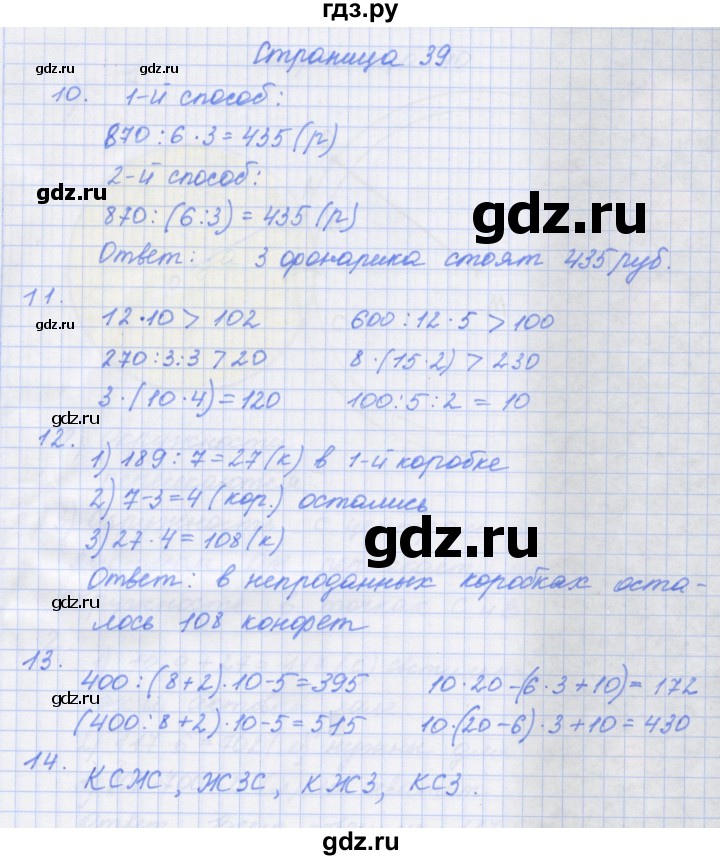 гдз.ру
Страница 39
gdz.ru gdz.ru
10. 1-й способ:
870:6·3=435(р)
2-й способ:
gdz.ru gdz.ru
870:(6:3)=435(р)
Ответ: 3 фонарика стоят 435 руб.
gdz.ru
11.
12·10>102 600:12·5>100
gdz.ru
270:3:3>20 8·(15·2)>230
3·(10·4)=120 100:5:2=10
gdz.ru
12.
1) 189:7=27(к) в 1-й коробке
gdz.ru
2) 7-3=4(кор.) остались
3) 27·4=108(к)
gdz.ru
Ответ: в непроданных коробках оста-
gdz.ru
лось 108 конфет
13.
400:(8+2)·10-5=395 10·20-(6·3+10)=172
gdz.ru
(400:8+2)·10-5=515 10·(20-6)·3+10=430
14.
КСЖС, ЖЗС, КЖЗ, КСЗ.
gdz.ru
gdz.ru